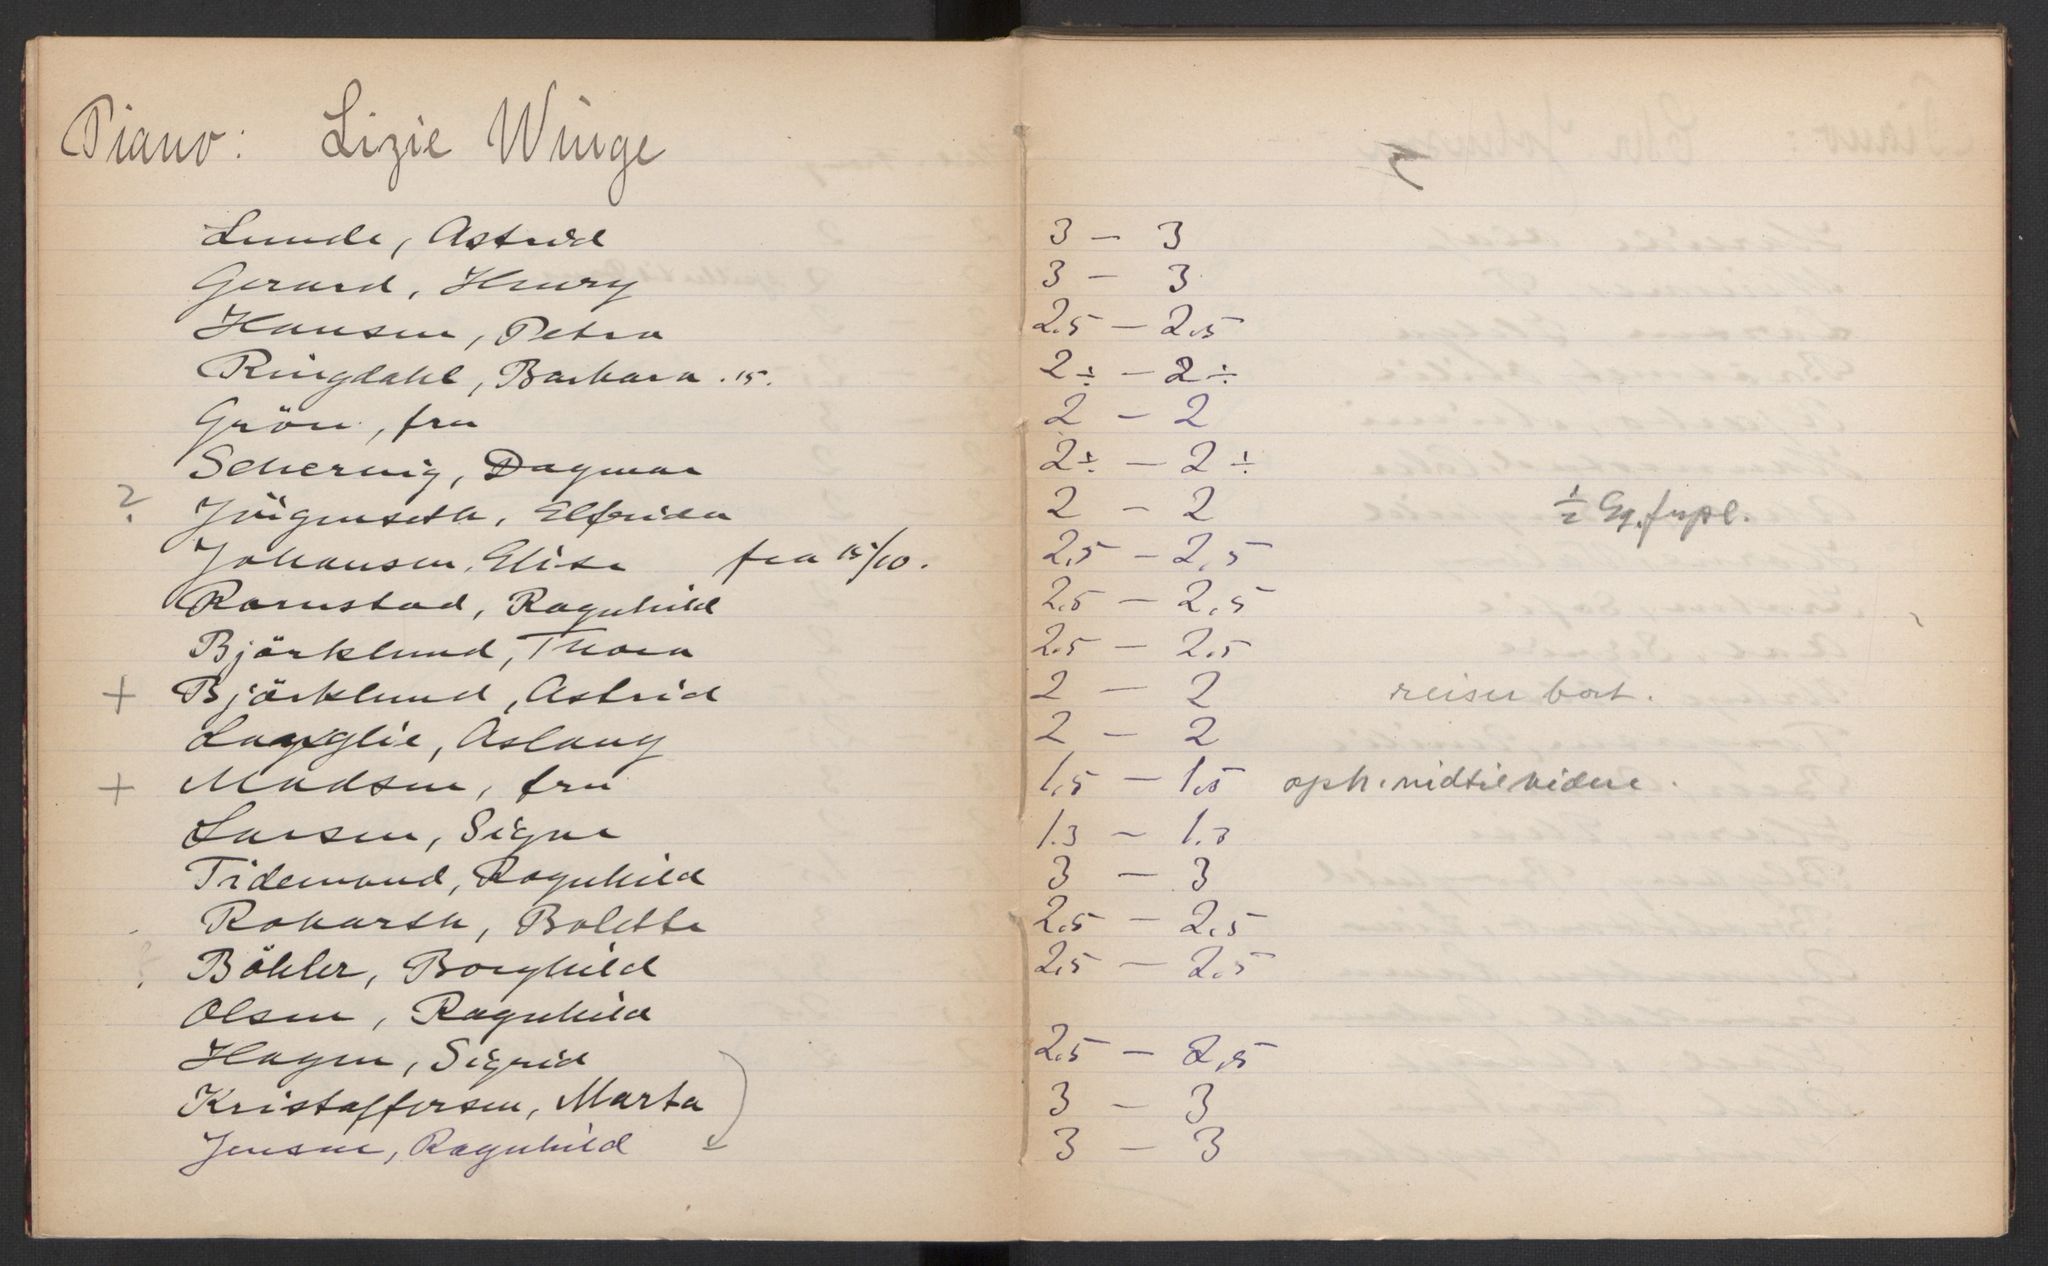 Piano: Lizie Winge
Lunde, Astrid 3 – 3
Gerard, Henry 3 – 3
Hansen, Petra 2.5 – 2.5
Ringdahl, Barbara . 15. 2÷ – 2÷
Grön, fru 2 – 2
Schernig, Dagmar 2÷ – 2÷
? Jörgenseth, Elfrida 2 – 2 ½
Johansen, Elise fra 15/10. 2,5 – 2,5
Ramstad, Ragnhild 2,5 – 2,5
Björklund, Thora 2.5 – 2.5
+ Björklund, Astrid 2 – 2 reiser bort.
Aslaug 2 – 2
+ Madsen, fru 1,5 – 1.5 oph. indtil videre.
Larsen, Signe 1.3 – 1.3
Tidemand, Ragnhild 3 – 3
Boletta 2.5 – 2.5
Böhler, Borghild 2,5 – 2,5
Olsen, Ragnhild
Hagen, Sigrid 2.5 – 2,5
Kristoffersen, Marta 3 – 3
Jensen, Ragnhild 3 – 3